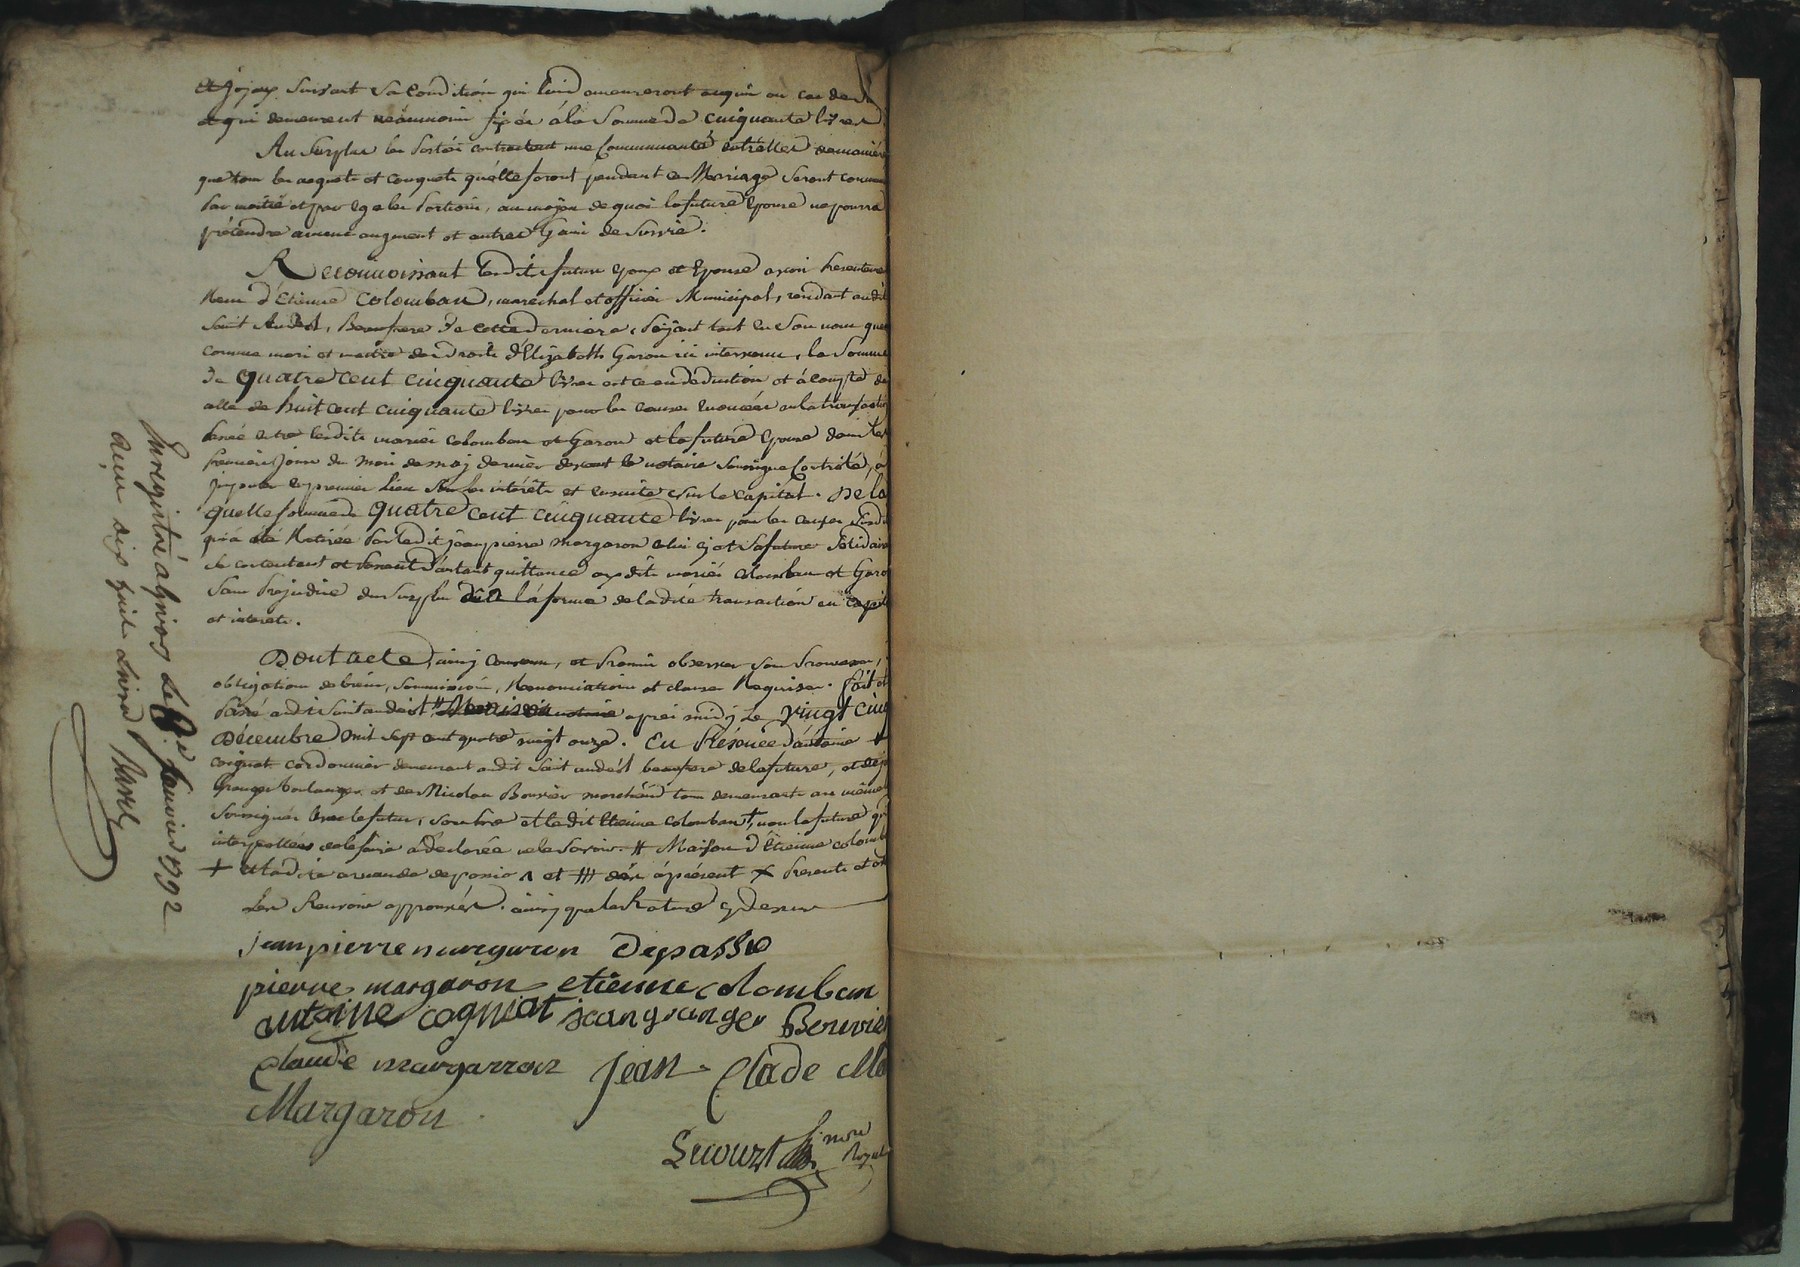 et joyaux suivant sa condition qui luid ameureront acquis au cas de
et qui demeurent néanmoins fixés à la somme de cinquante livres
Au surplus les parties contractent une Communauté entrélles demanière
que tous les acquets et conquets quélle feront pendant ce Marriage seront communs
par moitié et par egales portions, au moyen de quoi la future Epouse ne pourra
prétendre aucun augment et autres Gain de Survie.
Reconnoissant lesdits futurs epoux et Epouse avoir presentement
Reçu d'Etienne Colomban, marechal et officier Municipal, résidant audit
Saint Andéol, Beaufrere de cette derniere, payant tant en son nom que
comme mari et maitre des Droits d'Elizabeth Garon ici intervenue, la Somme
De quatre cent cinquante livres et ce en déduction et à compte de
celle de huit cent cinquante livres pour les causes enoncées en la transaction
passée entre lesdits mariés Colomban et Garon et la future Epouse dans les
premiers jours du mois de may dernier devant le notaire soussigné Controlé, à
imputer en premier lieu sur les intérêts et ensuite sur le capital. De la
quelle somme de quatre cent cinquante livres pour les causes susd
qui a été Retirée par ledit jean pierre margaron celui cy et sa future solidaire
se contentent et passent d'autant quittance auxdits mariés Colomban et Garon
sans préjudice du surplus dû à la forme de ladite transaction en capital
et interets.
Dont acte, ainsy convenu, et promis observer sous
obligation de biens, soumissions, Renonciations et clauses Requises. fait et
passé audit Saint andéol # après midy Le vingt cinq
Décembre mil sept cent quatre vingt onze. En Présence d'antoine
cogniat cordonnier demeurant audit Saint andéol beaufrere de la future, et de jean
Granger boulanger et de Nicolas Bouvier marchand tous demeurants au même
soussignés avec le futur, son frere et ledit Etienne colomban, non la future qui
interpellée de le faire a déclarée ne le savoir. # Maison d'Etienne colomban
+ et ladite et ## à présent x Présents et
Les Renvois approuvés. ainsy que la Rature cy dessus
jean pierre margaron Depasse
pierre margaron etienne colomban
antoine cogniat jean granger Bouvier
Claude margarron Jean Clade Ma
Margaron
Lecourt Nore Royal
Enregistré a Givors Le Janvier 1792
dix huit Livres